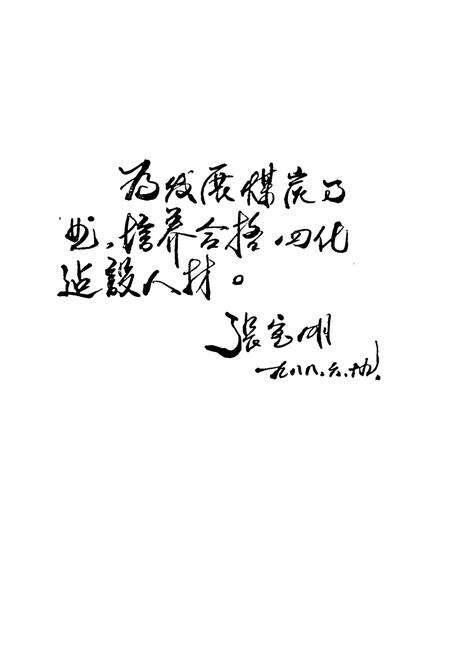 为发展煤炭事
业，培养合格四化
建設人材。
張宝明
一九八八.六.十九.